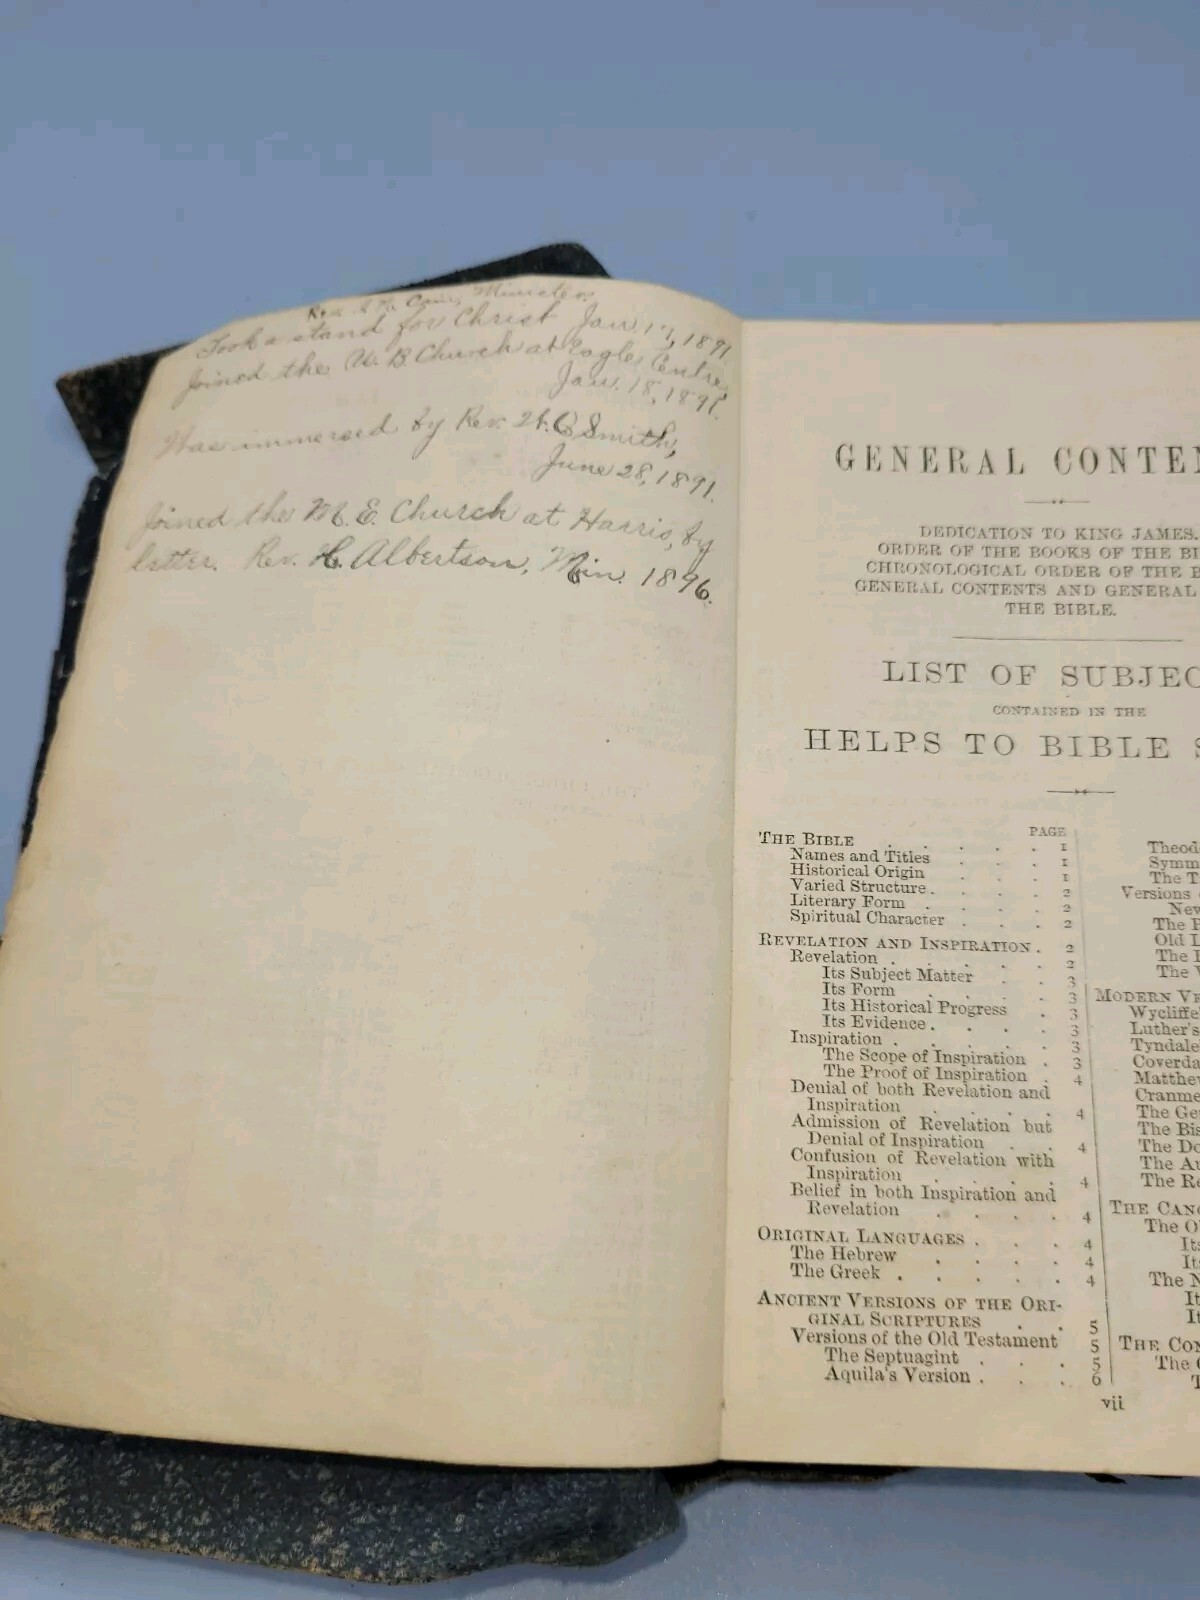 Rev. Minister.
Took a stand for Christ Jan. 17, 1891
Joined the U. B. Church at Eagle Centre,
Jan. 18, 1891.
Was immersed by Rev. W. C. Smith,
June 28, 1891.
Joined the M. E. Church at Harris, by
letter. Rev. H. Albertson, Min. 1896.
GENERAL CONTEN
DEDICATION TO KING JAMES.
ORDER OF THE BOOKS OF THE BI
CHRONOLOGICAL ORDER OF THE B
GENERAL CONTENTS AND GENERAL
THE BIBLE.
LIST OF SUBJEC
CONTAINED IN THE
HELPS TO BIBLE S
PAGE
THE BIBLE . . . . . 1
Names and Titles . . . 1
Historical Origin . . . 1
Varied Structure . . . . 2
Literary Form . . . . 2
Spiritual Character . . . 2
REVELATION AND INSPIRATION . 2
Revelation . . . . . . 2
Its Subject Matter . . 3
Its Form . . . . 3
Its Historical Progress . 3
Its Evidence . . . . 3
Inspiration . . . . . . 3
The Scope of Inspiration . 3
The Proof of Inspiration . 4
Denial of both Revelation and
Inspiration . . . . 4
Admission of Revelation but
Denial of Inspiration . . 4
Confusion of Revelation with
Inspiration . . . . 4
Belief in both Inspiration and
Revelation . . . . 4
ORIGINAL LANGUAGES . . . 4
The Hebrew . . . . 4
The Greek . . . . . 4
ANCIENT VERSIONS OF THE ORI-
GINAL SCRIPTURES . . 5
Versions of the Old Testament 5
The Septuagint . . . 5
Aquila's Version . . . 6
Theod
Symm
The T
Versions
New
The P
Old L
The
The V
MODERN VE
Wycliffe'
Luther's
Tyndale
Coverda
Matthe
Cranme
The Ge
The Bis
The Do
The Au
The Re
THE CANO
The Ol
Its
Its
The N
It
It
THE CON
The
vii